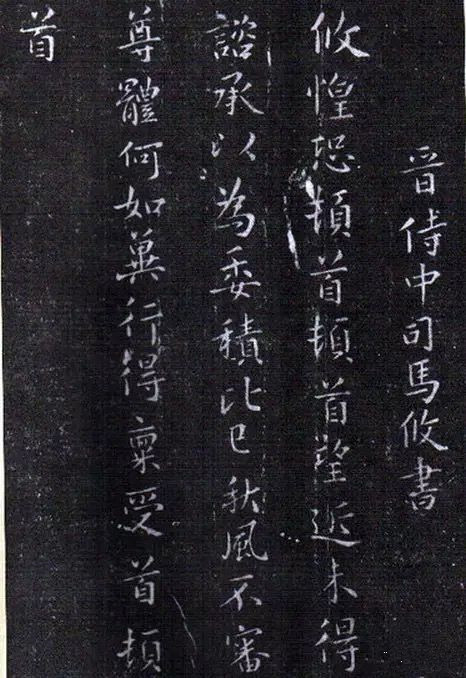 晋侍中司馬攸書
攸惶恐頓首頓首望近未得
諮承以為委積比已秋風不審
尊體何如冀行得稟受首頓
首